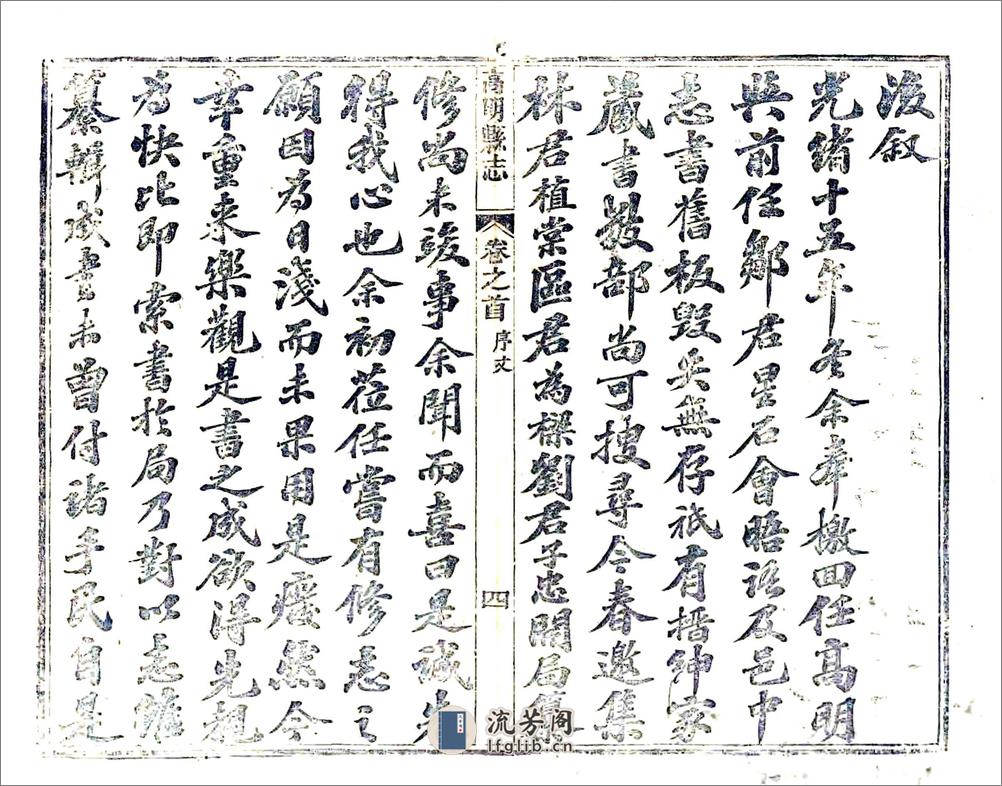 後叙
光緒十五年冬余奉檄回任高明
與前任鄒君星石會晤話及邑中
志書舊板毀失無存祇有搢紳家
藏書數部尚可搜尋今春邀集
林君植棠區君為樑劉君子忠開局
高明縣志
卷之首
序文
四
修尚未竣事余聞而喜曰是誠先
得我心也余初莅任嘗有修志之
願因為日淺而未果用是癈然今
幸重來樂觀是書之成欲得先覩
為快比即索書於局乃對以志雖
纂輯成書未曾付諸手民自是
流芳阁
lfglib.cn